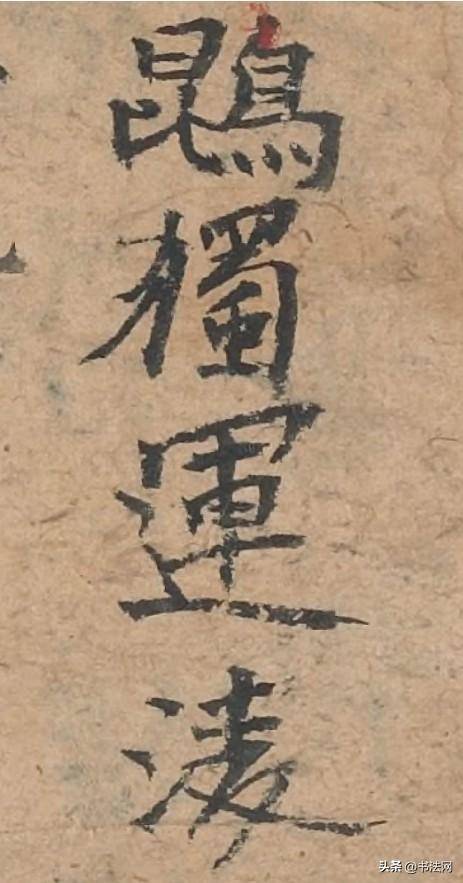 鵾獨運淩
头条 @书法网